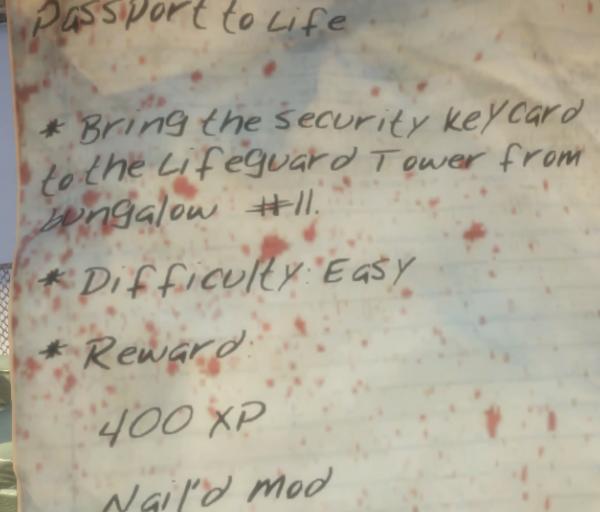 Passport to Life
* Bring the security keycard
to the Lifeguard Tower from
bungalow #11.
* Difficulty: Easy
* Reward:
400 XP
Nail'd mod